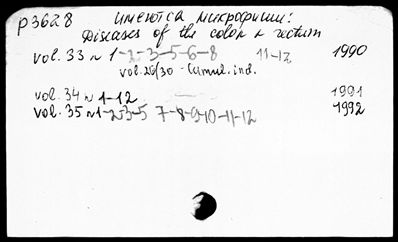 р3628 имеются микрофиши:
Diseases of the colon & rectum
vol. 33 N 1-2-3-5-6-8 11-12 1990
vol. 26/30 - Cumul. ind.
vol. 34 N 1-12 1991
vol. 35 N 1-2-3-5 7-8-9-10-11-12 1992